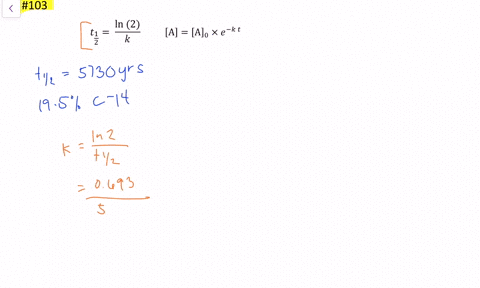 #103
t_{1/2} = ln (2) / k    [A] = [A]_0 × e^{-k t}
t_{1/2} = 5730 yrs
19.5% C-14
k = ln 2 / t_{1/2}
= 0.693 / 5